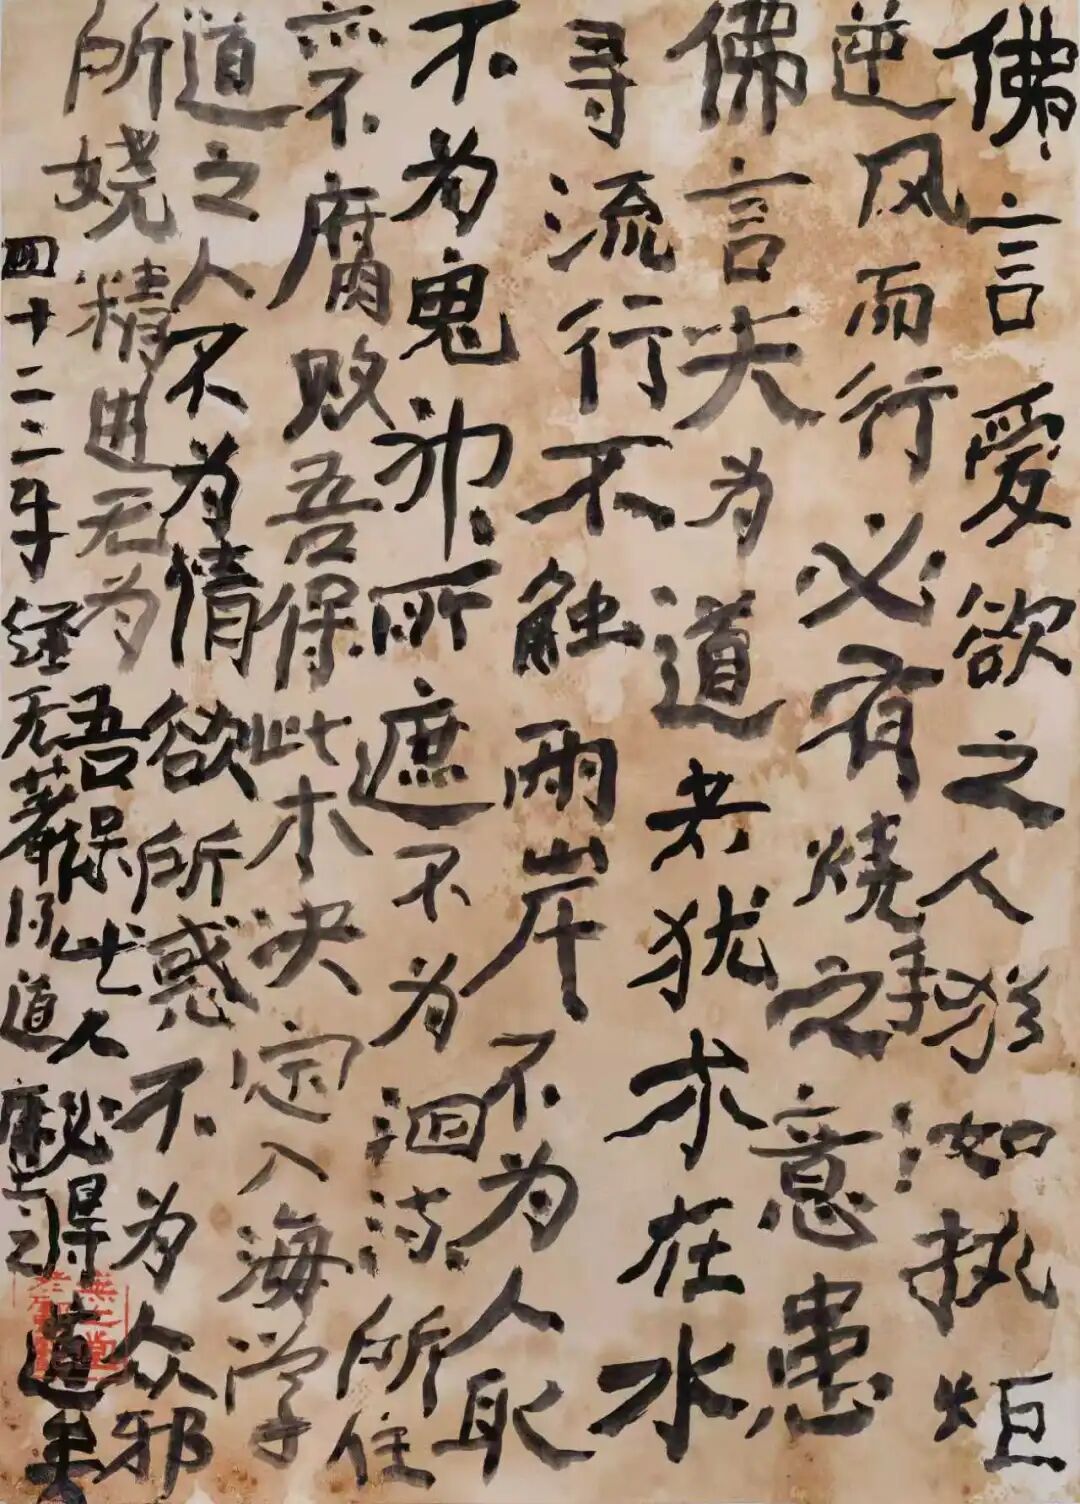 佛言爱欲之人犹如执炬
逆风而行必有烧手之意患
佛言夫为道者犹木在水
寻流行不触兩岸不为人取
不为鬼神所遮不为洄流所住
亦不腐败吾保此木决定入海学
道之人不为情欲所惑不为众邪
所娆精进无为吾保此人必得道矣
四十二章经无著道